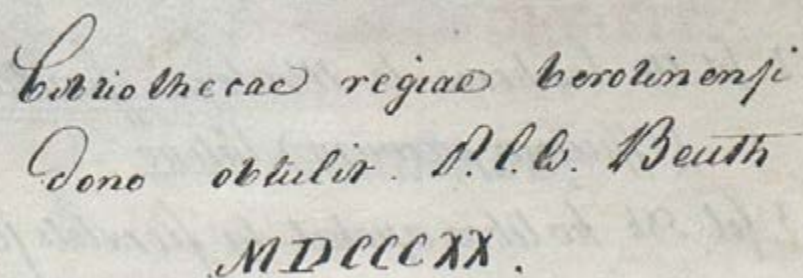 bibliothecae regiae berolinensi
dono obtulit. P.C.W. Beuth
MDCCCXX.